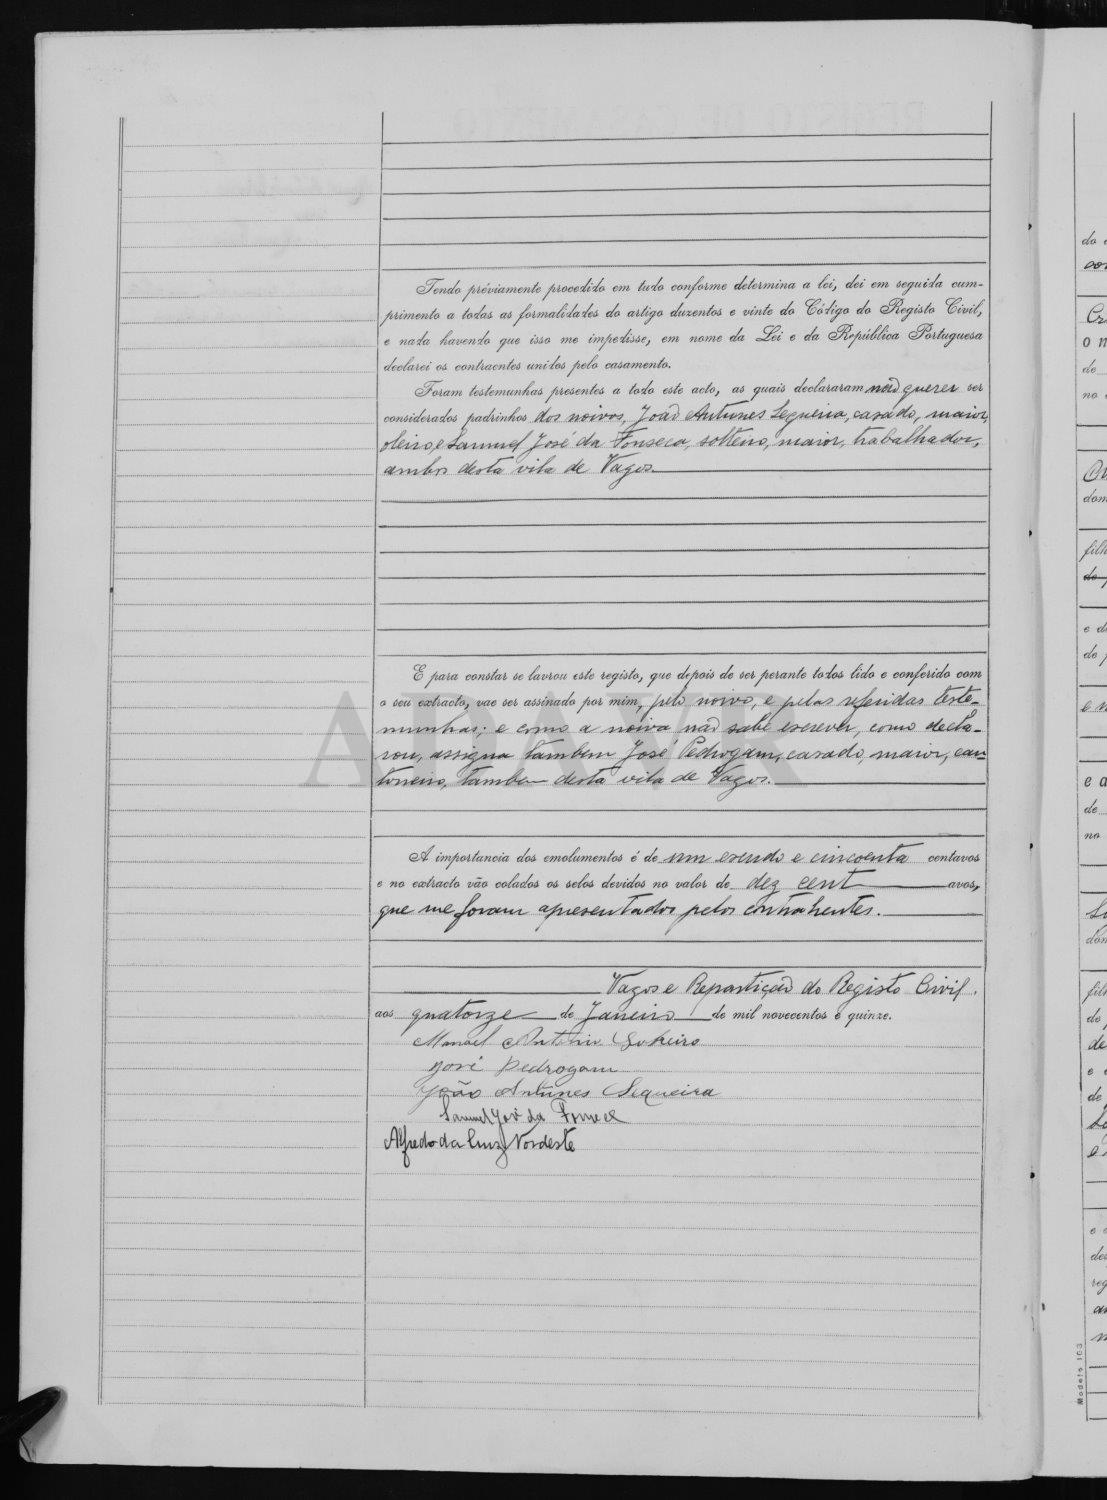 Tendo préviamente procedido em tudo conforme determina a lei, dei em seguida cum-
primento a todas as formalidades do artigo duzentos e vinte do Código do Registo Civil,
e nada havendo que isso me impedisse, em nome da Lei e da República Portuguesa
declarei os contraentes unidos pelo casamento.
Foram testemunhas presentes a todo este acto, as quais declararam não querer ser
considerados padrinhos dos noivos, João Antunes Sequeira, casado, maior,
oleiro, e Samuel José da Fonseca, solteiro, maior, trabalhador,
ambos desta vila de Vagos
E para constar se lavrou este registo, que depois de ser perante todos lido e conferido com
o seu extracto, vae ser assinado por mim, pelo noivo, e pelas referidas teste-
munhas; e como a noiva não sabe escrever, como decla-
rou, assigna tambem José Pedrogam, casado, maior, can-
toneiro, tambem desta vila de Vagos.
A importancia dos emolumentos é de um escudo e cincoenta centavos
e no extracto vão colados os selos devidos no valor de dez cent avos,
que me foram apresentados pelos contrahentes.
Vagos e Repartição do Registo Civil.
aos quatorze de Janeiro de mil novecentos e quinze.
Manoel Antonio
José Pedrogam
João Antunes Sequeira
Samuel José da Fonseca
Alfredo da Cruz Nordeste
ADAVR
Modelo 103